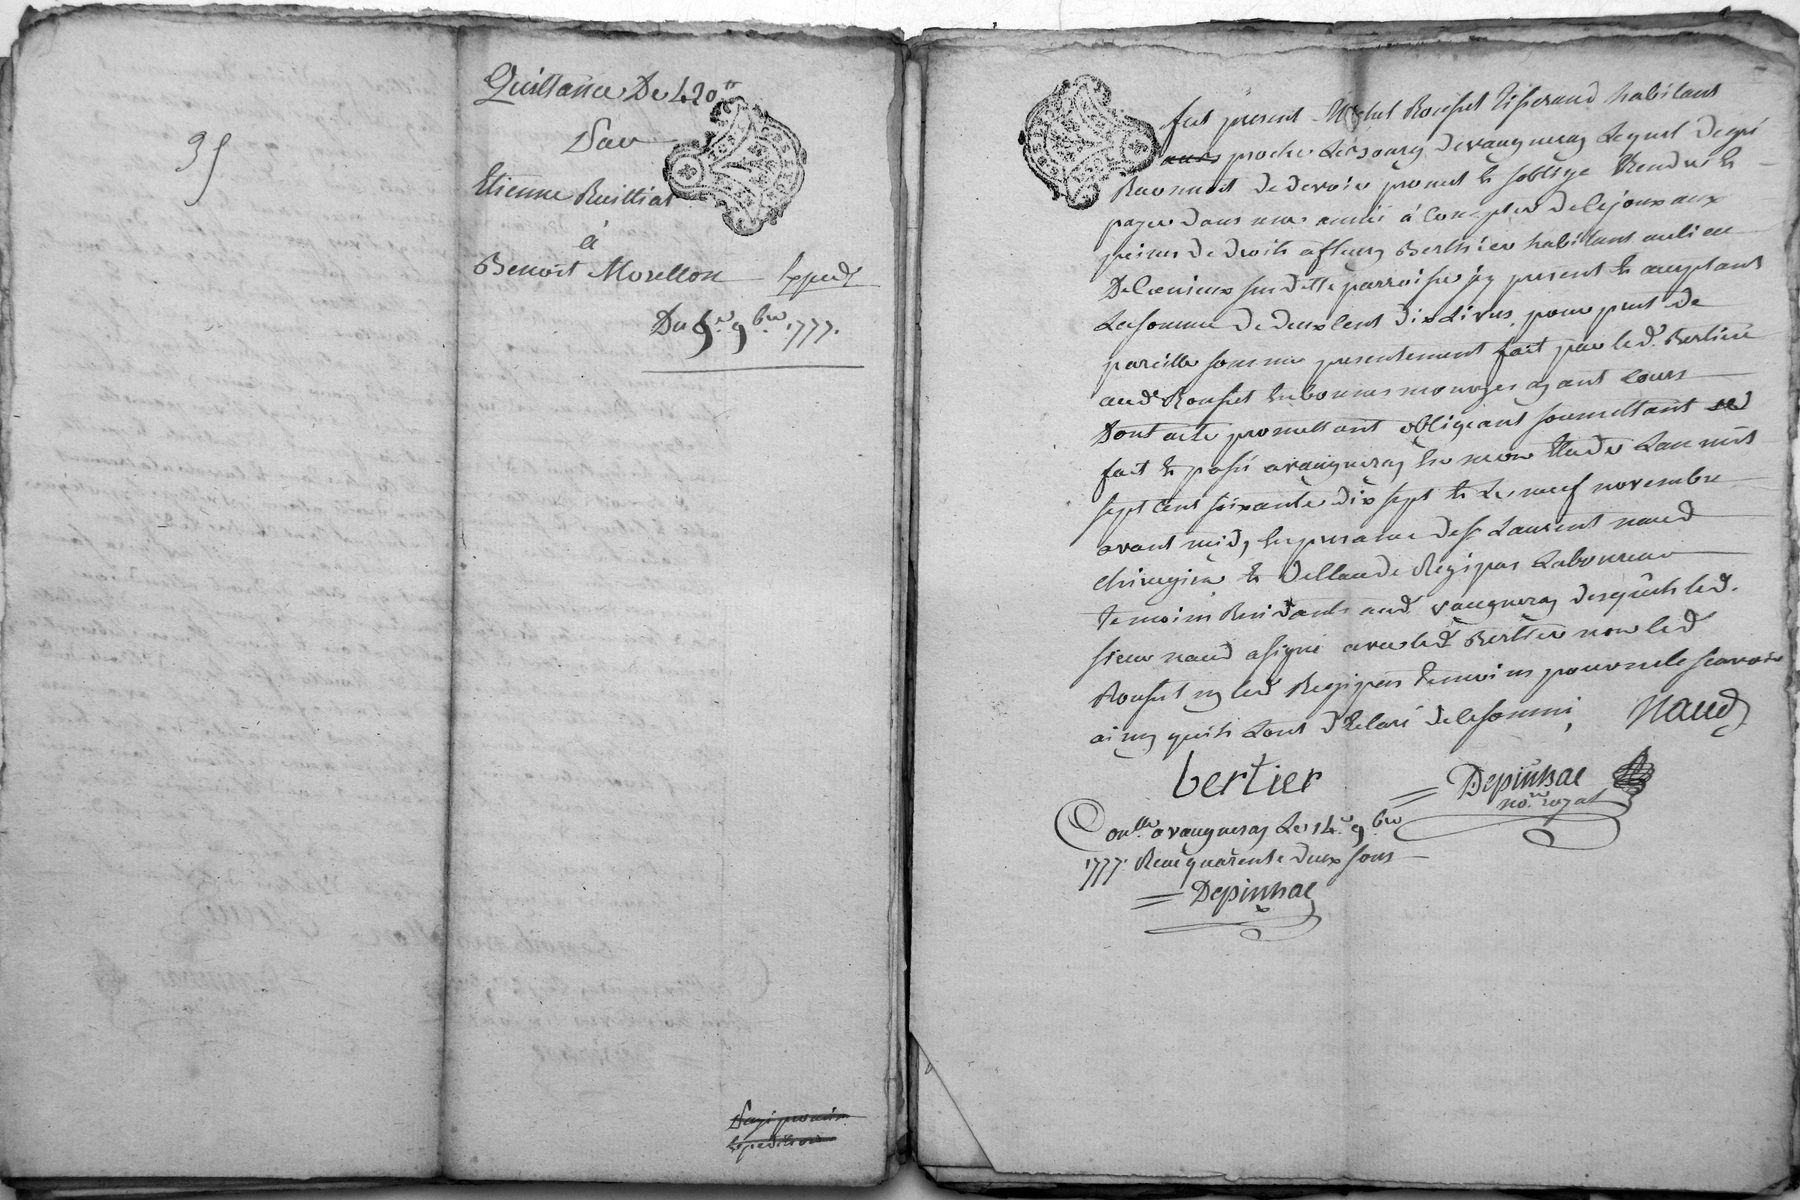 35
Quittance De 420tt
Par
Etienne Ruilliat
à
Benoist Morellon Expedé
Du 9e 9bre 1777.
Payé pour min
Expedition
fut present Michel Rousset tisserand habitant
proche Le Bourg de vaugneray Lequel de gré
Reconnoit de devoir promet & soblige Rendre &
payer dans une année à Compter de ce jour aux
peines de droits a fleury Berthier habitant au lieu
De susdtte parroisse icy present & acceptant
La somme De deux Cent dix Livres, pour pret de
pareille somme presentement fait par led. Bertier
aud. Rousset En bonnes monoyes ayant Cours
Dont acte promettant obligeant soumettant
fait & passé a vaugneray En mon Etude Lan mil
sept Cent soixante dix sept & Le neuf novembre
avant midy En presance de sr Laurent naud
chirurgien & De Claude Regipas Laboureur
temoins Residants aud. vaugneray desquels led.
sieur naud a signé avec led Bertier non led
Rousset ny led Regipas temoins pour ne le scavoir
ainsy quils Lont declaré de ce sommé, Naud
bertier
= Depinhac
nore royal
Conllé a vaugneray Le 14e 9bre
1777. Reçu quarente deux sous
= Depinhac